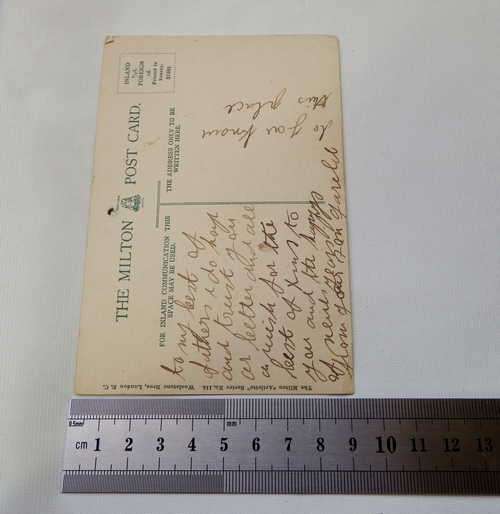 THE MILTON POST CARD.
FOR INLAND COMMUNICATION THIS
SPACE MAY BE USED.
THE ADDRESS ONLY TO BE
WRITTEN HERE.
INLAND
½d.
FOREIGN
1d.
Printed in
to my best of
fathers & do hope
and trust you
are better and all
a wish for the
best of Xmas to
you and the happy
of new years
from your son
do you know
this place
The Milton "Artlette" Series No. 114. Woolstone Bros., London E.C.
0.5mm
mm
cm 1 2 3 4 5 6 7 8 9 10 11 12 13